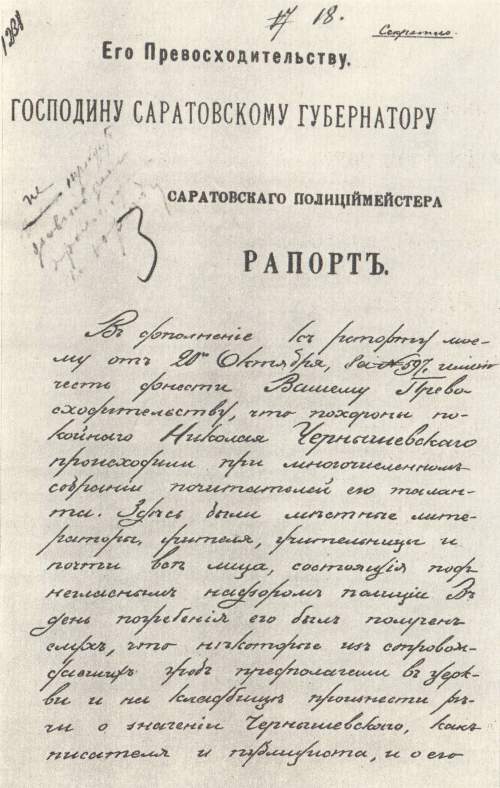 1288
18.
Секретно.
Его Превосходительству.
ГОСПОДИНУ САРАТОВСКОМУ ГУБЕРНАТОРУ
не
САРАТОВСКАГО ПОЛИЦІЙМЕЙСТЕРА
РАПОРТЪ.
Въ дополненіе къ рапорту мое-
му отъ 20го Октября, за № 597, имѣю
честь донести Вашему Прево-
сходительству, что похороны по-
койнаго Николая Чернышевскаго
происходили при многочисленномъ
собраніи почитателей его талан-
та. Здѣсь были мѣстные лите-
раторы, учителя, учительницы и
почти всѣ лица, состоящія подъ
негласнымъ надзоромъ полиціи Въ
день погребенія его былъ полученъ
слухъ, что нѣкоторые изъ сопровож-
давшихъ гробъ предполагали въ церк-
ви и на кладбищѣ произнести рѣ-
чи о значеніи Чернышевскаго, какъ
писателя и публициста, и о его